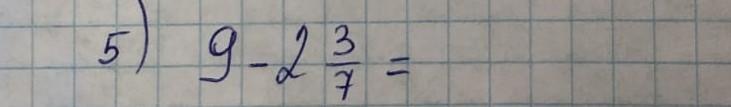 5) 9 - 2 3/7 =